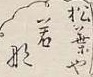 松葉や
若那